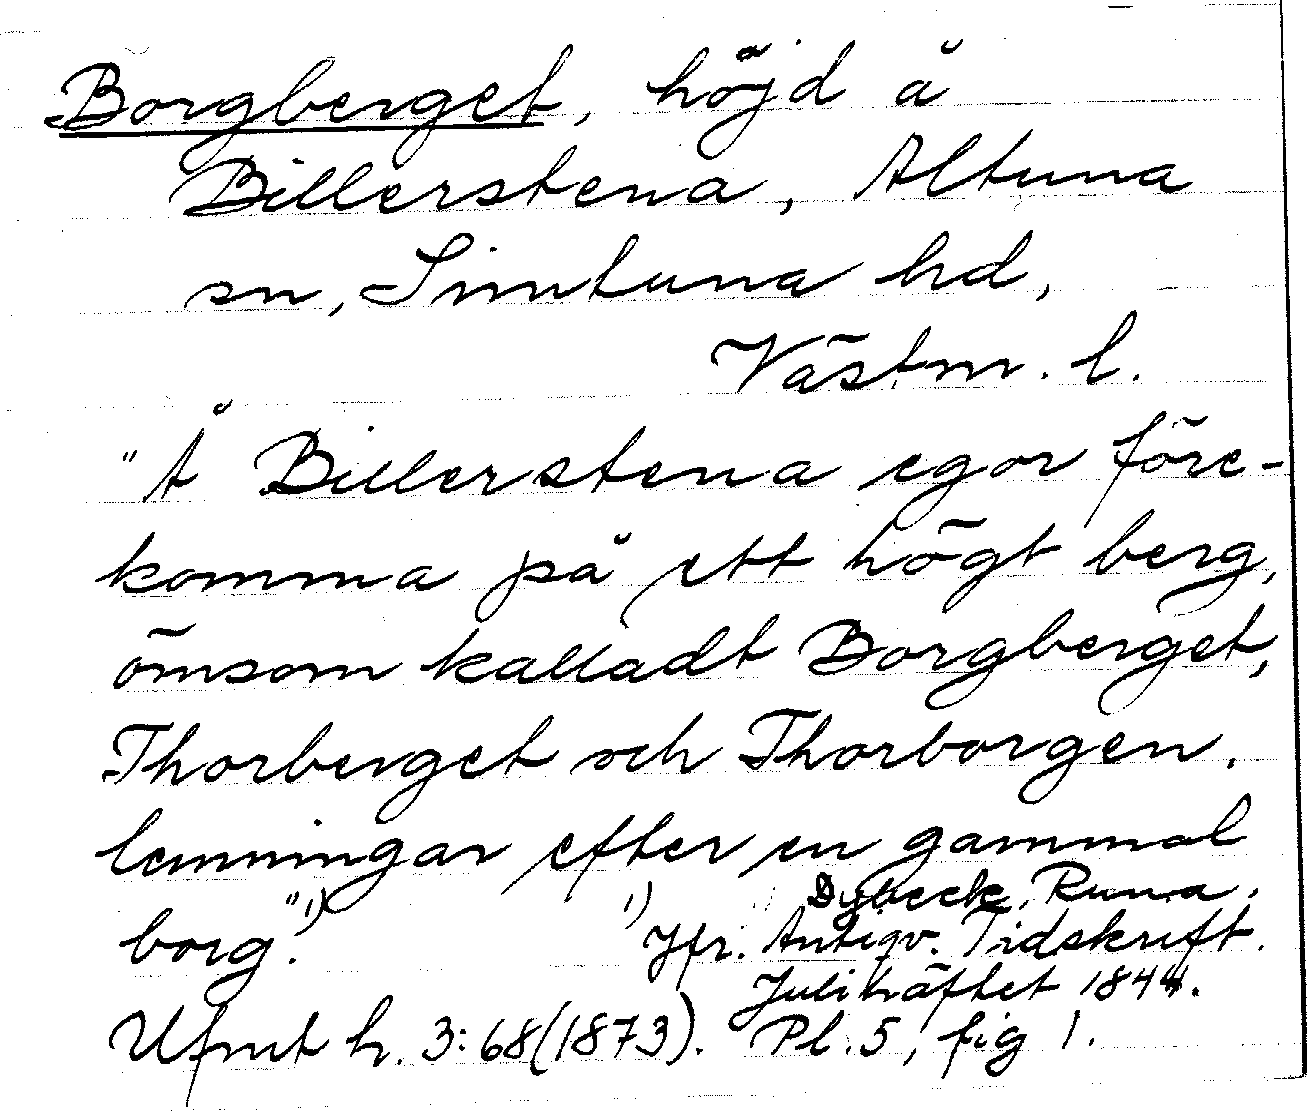 Borgberget, höjd å
Billerstena, Altuna
sn, Simtuna hd,
Västm. l.
"Å Billerstena egor före-
komma på ett högt berg,
ömsom kalladt Borgberget,
Thorberget och Thorborgen,
lemningar efter en gammal
borg."¹)
¹) Jfr. Dybeck, Runa.
Antiqv. Tidskrift.
Julihäftet 1844.
Pl. 5, fig 1.
Ufmt h. 3:68 (1873).